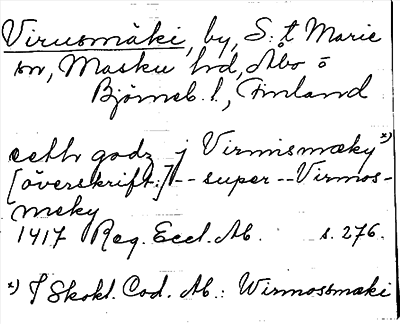 Virusmäki, by, S:t Marie
sn, Masku hd, Åbo o
Björneb. l., Finland
eeth godz j Virmismæky x)
[överskrift:] -- super -- Virmos-
meky
1417 Reg. Eccl. Ab. s. 276.
x) I Skokl. Cod. Ab.: Wirmossmaki